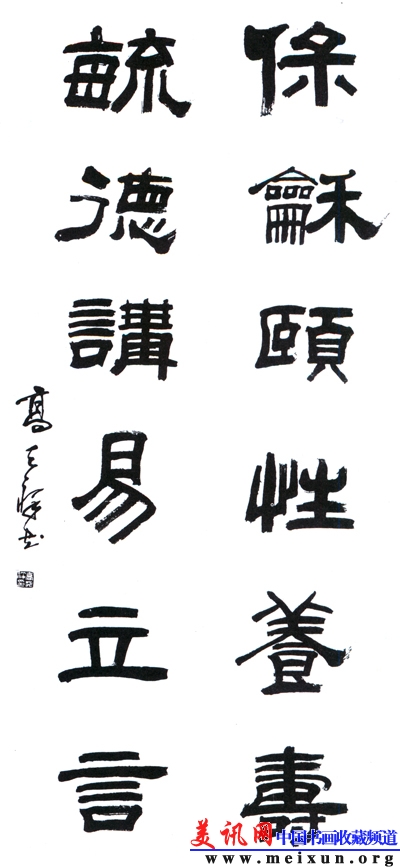 保龢頤性養壽
毓德講易立言
高
美讯网 中国书画收藏频道
www.meixun.org